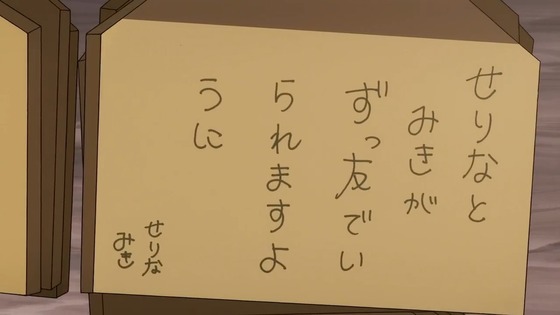 せりなと
みきが
ずっ友でい
られますよ
うに
せりな
みき